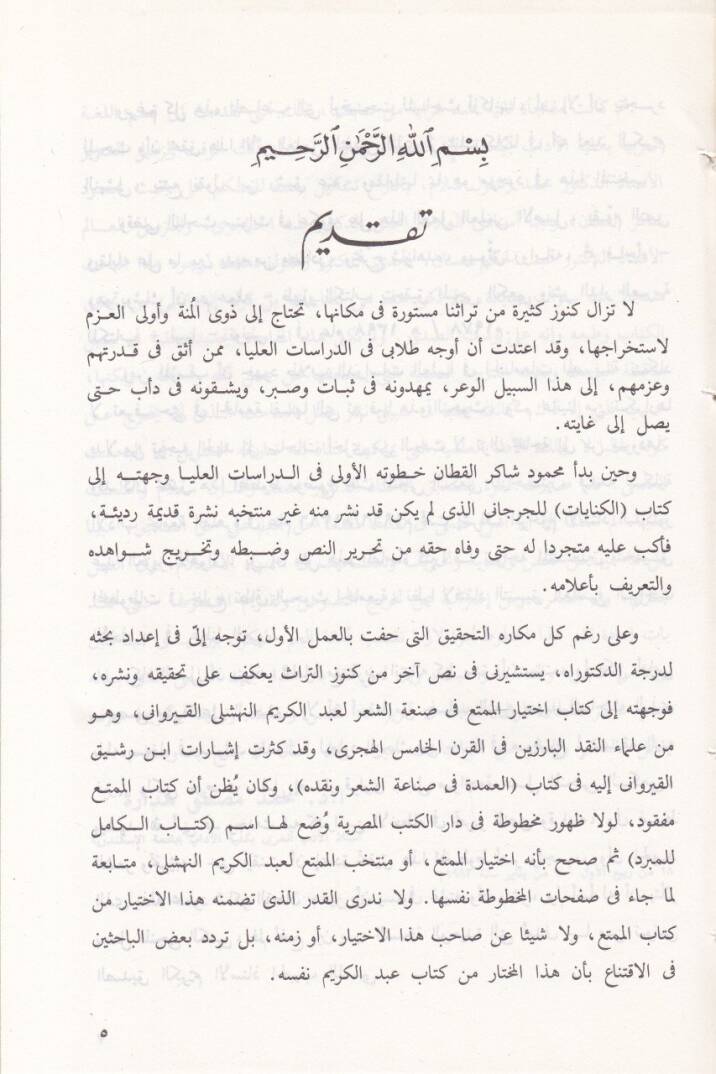 بِسْمِ ٱللَّهِ ٱلرَّحْمَٰنِ ٱلرَّحِيمِ
تقديم
لا تزال كنوز كثيرة من تراثنا مستورة فى مكانها، تحتاج إلى ذوى المُنة وأولى العـزم
لاستخراجها، وقد اعتدت أن أوجه طلابى فى الدراسات العليا، ممن أثق فى قـدرتهم
وعزمهم، إلى هذا السبيل الوعر، يمهدونه فى ثبات وصبر، ويشقونه فى دأب حتـى
يصل إلى غايته.
وحين بدأ محمود شاكر القطان خطوته الأولى فى الـدراسات العليا وجهتـه إلى
كتاب (الكنايات) للجرجانى الذى لم يكن قد نشر منه غير منتخبه نشرة قديمة رديئة،
فأكب عليه متجردا له حتى وفاه حقه من تحرير النص وضـبطه وتخـريج شـواهده
والتعريف بأعلامه.
وعلى رغم كل مكاره التحقيق التى حفت بالعمل الأول، توجه إلىّ فى إعداد بحثه
لدرجة الدكتوراه، يستشيرنى فى نص آخر من كنوز التراث يعكف على تحقيقه ونشره،
فوجهته إلى كتاب اختيار الممتع فى صنعة الشعر لعبد الكريم النهشلى القيروانى، وهـو
من علماء النقد البارزين فى القرن الخامس الهجرى، وقد كثرت إشارات ابـن رشـيق
القيروانى إليه فى كتاب (العمدة فى صناعة الشعر ونقده)، وكان يُظن أن كتاب الممتـع
مفقود، لولا ظهور مخطوطة فى دار الكتب المصرية وُضع لهـا اسـم (كتـاب الـكامل
للمبرد) ثم صحح بأنه اختيار الممتع، أو منتخب الممتع لعبد الكريم النهشلى، متـابعة
لما جاء فى صفحات المخطوطة نفسها. ولا ندرى القدر الذى تضمنه هذا الاختيار من
كتاب الممتع، ولا شيئا عن صاحب هذا الاختيار، أو زمنه، بل تردد بعض الباحثين
فى الاقتناع بأن هذا المختار من كتاب عبد الكريم نفسه.
٥